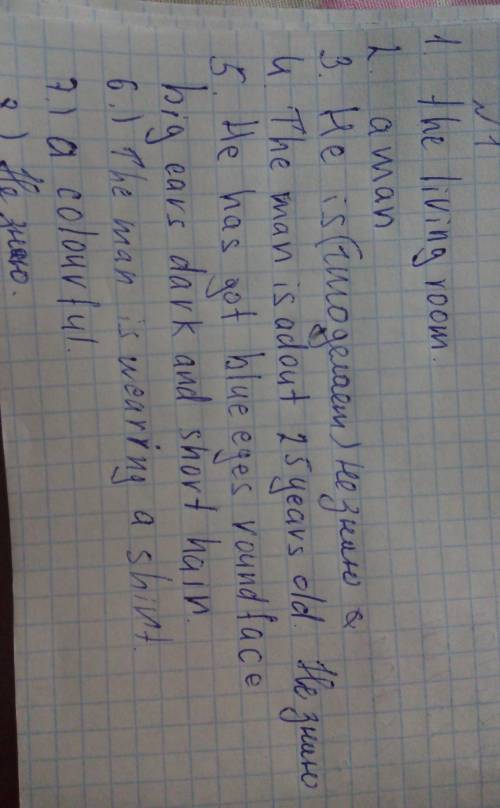 №1
1. the living room.
2. a man
3. He is (что делает) не знаю
4. The man is adout 25 years old. Не знаю
5. He has got blue eyes round face
big ears dark and short hair.
6.) The man is wearring a shirt.
7.) a colourful.
) Не знаю.